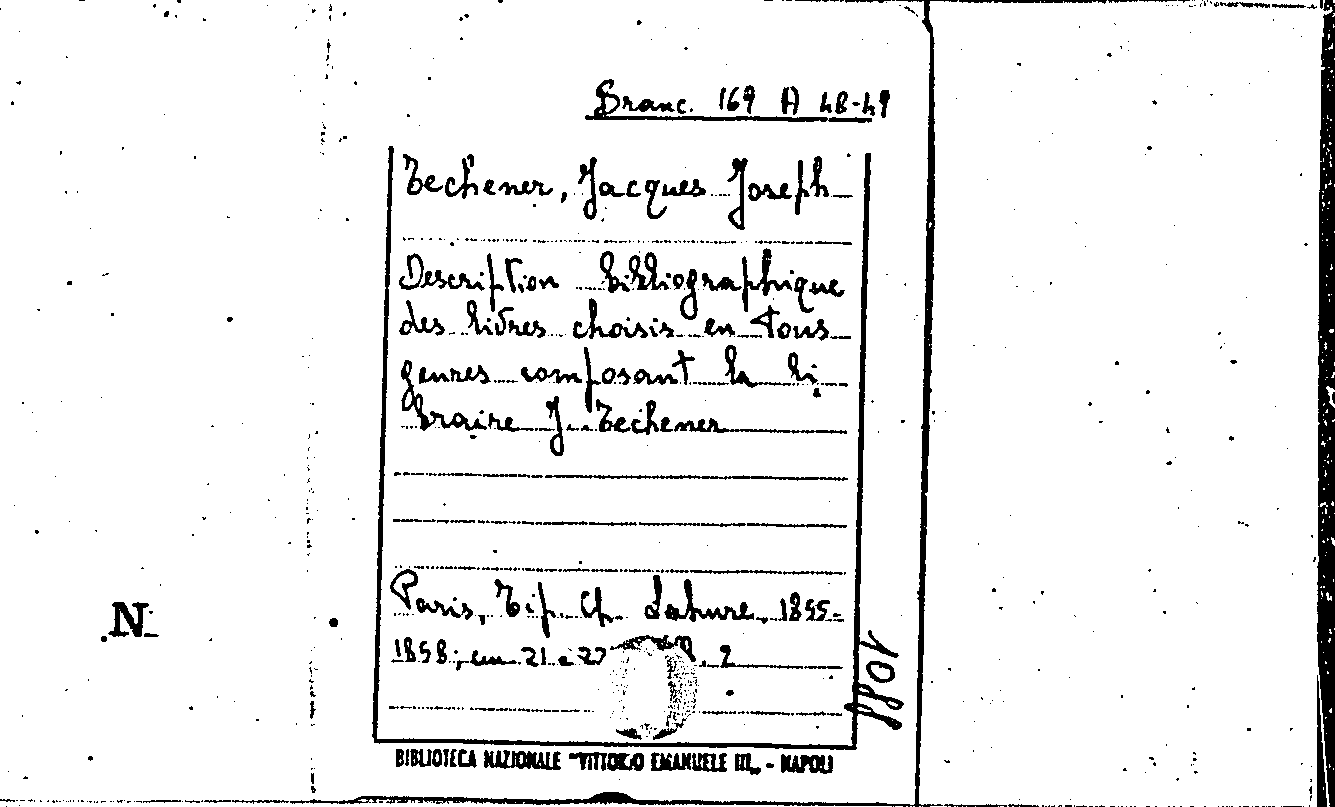 Branc. 169 A 48-49
Techener, Jacques Joseph
Description bibliographique
des livres choisis en tous
genres composant la li
braire J. Techener
Paris, Tip. Ch. Lahure, 1855-
1858; cm. 21 e 22 2
1088
N
BIBLIOTECA NAZIONALE "VITTORIO EMANUELE III„ - NAPOLI